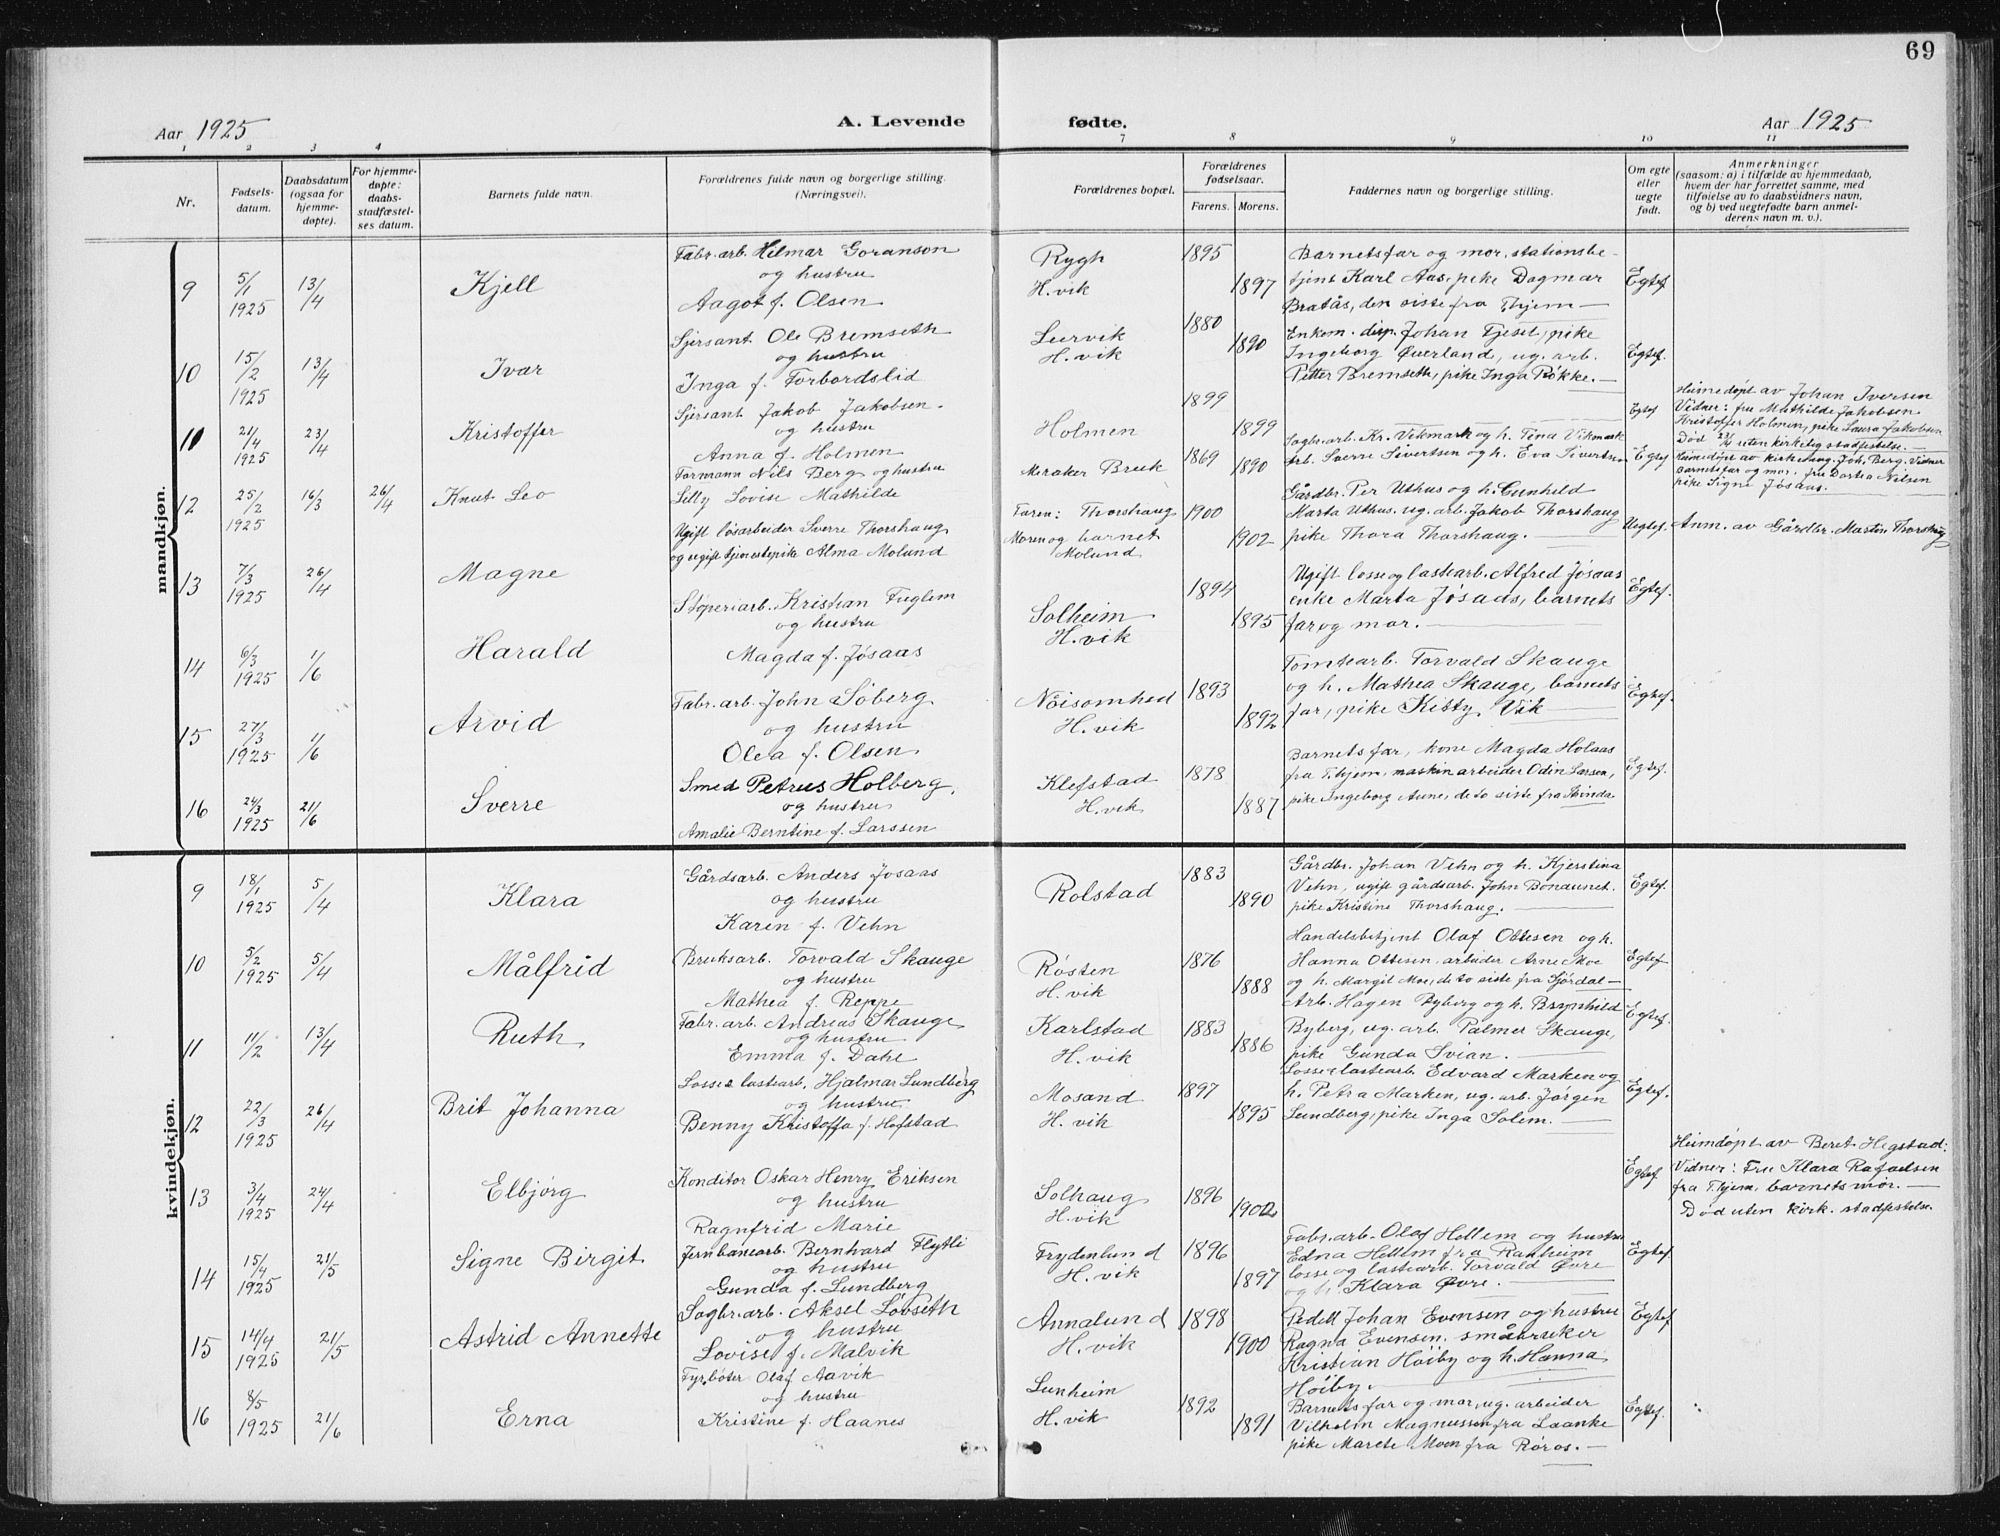 69
Aar 1925
A. Levende
fødte.
Aar 1925
1 2 3 4 7 8 9 10 11
Nr.
Fødsels-
datum.
Daabsdatum
(ogsaa for
hjemme-
døpte).
For hjemme-
døpte:
daabs-
stadfæstel-
ses datum.
Barnets fulde navn.
Forældrenes fulde navn og borgerlige stilling.
(Næringsvei).
Forældrenes bopæl.
Forældrenes
fødselsaar.
Farens. Morens.
Faddernes navn og borgerlige stilling.
Om egte
eller
uegte
født.
Anmerkninger
(saasom: a) i tilfælde av hjemmedaab,
hvem der har forrettet samme, med
tilføielse av to daabsvidners navn,
og b) ved uegtefødte barn anmel-
derens navn m. v.).
mandkjøn.
9
5/1
1925
13/4
Kjell
Fabr.arb. Hilmar Goranson
og hustru
Aagot f. Olsen
Rygh
H.vik
1895
1897
Barnets far og mor, stationsbe-
tjent Karl Aas, pike Dagmar
Bratås, den siste fra Thjem
Egtef.
10
15/2
1925
13/4
Ivar
Sjersant Ole Bremseth
og hustru
Inga f. Forbordslid
Leervik
H.vik
1880
1890
Enkem. disp. Johan Fjesel, pike
Ingeborg Øverland, ug. arb.
Petter Bremseth, pike Inga Røkke.
Egtef.
11
21/4
1925
23/4
Kristoffer
Sjersant Jakob Jakobsen.
og hustru
Anna f. Holmen
Holmen
1899
1899
Egtef
Heimedøpt av Johan Iversen
Vidner: fru Mathilde Jakobsen
Kristoffer Holmen, pike Laura Jakobsen
Død 23/4 uten kirkelig stadfestelse.
12
25/2
1925
16/3
26/4
Knut Leo
Formann Nils Berg og hustru
Lilly Lovise Mathilde
Meraker Bruk
1869
1890
Sagbr.arb. Kr. Vikmark og h. Tina Vikmark
arb. Sverre Sivertsen og h. Eva Sivertsen
Egtef
Heimedøpt av kirkesang. Joh. Berg. Vidner
Barnets far og mor, fru Dortea Nilsen
pike Signe Jøsaas.
13
7/3
1925
26/4
Magne
Ugift løsarbeider Sverre Thorshaug
og ugift tjenestepike Alma Molund
Faren: Thorshaug
Moren og barnet
Molund
1900
1902
Gårdbr. Per Uthus og h. Gunhild
Marta Uthus, ug. arb. Jakob Thorshaug
pike Thora Thorshaug.
Uegtef.
Anm. av Gårdbr. Martin Thorshaug
14
6/3
1925
1/6
Harald
Støperiarb. Kristian Fuglem
og hustru
Magda f. Jøsaas
Solheim
H.vik
1894
1895
Ugift losse og lastearb. Alfred Jøsaas
enke Marta Jøsaas, barnets
far og mor.
Egtef.
15
27/3
1925
1/6
Arvid
Fabr.arb. John Søberg
og hustru
Olea f. Olsen
Nøisomhed
H.vik
1893
1892
Tomtearb. Torvald Skauge
og h. Mathea Skauge, barnets
far, pike Kitty Vik
Egtef.
16
24/3
1925
21/6
Sverre
Smed Petrus Holberg,
og hustru
Amalie Berntine f. Larssen
Klefstad
H.vik
1878
1887
Barnets far, kone Magda Holaas
fra Thjem, maskinarbeider Odin Larsen,
pike Ingeborg Aune, de to siste fra Strinda
Egtef.
kvindekjøn.
9
18/1
1925
5/4
Klara
Gårdsarb. Anders Jøsaas
og hustru
Karen f. Vehn
Rolstad
1883
1890
Gårdbr. Johan Vehn og h. Kjerstina
Vehn, ugift gårdsarb. John Bonaunet.
pike Kristine Thorshaug.
Egtef.
10
5/2
1925
5/4
Målfrid
Bruksarb. Torvald Skauge
og hustru
Mathea f. Reppe
Røsten
H.vik
1876
1888
Handelsbetjent Olaf Ottesen og h.
Hanna Ottesen, arbeider Arne Moe
og h. Margit Moe, de to siste fra Stjørdal
Egtef
11
11/2
13/4
Ruth
Fabr. arb. Andreas Skauge
og hustru
Emma f. Dahl
Karlstad
H.vik
1883
1886
Arb. Hagen Byberg og h. Brynhild
Byberg, ug. arb. Palmer Skauge,
pike Gunda Svian.
Egtef.
12
22/3
1925
26/4
Brit Johanna
Losse & lastearb. Hjalmar Lundberg
og hustru
Benny Kristoffa f. Hofstad
Mosand
H.vik
1897
1895
Losse & lastearb. Edvard Marken og
h. Petra Marken, ug. arb. Jørgen
Lundberg, pike Inga Solem.
Egtef.
13
3/4
1925
24/4
Elbjørg
Konditor Oskar Henry Eriksen
og hustru
Ragnfrid Marie
Solhaug
H.vik
1896
1902
Egtef
Heimdøpt av Beret Hegstad:
Vidner: Fru Klara Rafaelsen
fra Thjem, barnets mor.
Død uten kirk. stadfestelse.
14
15/4
1925
21/5
Signe Birgit
Jernbanearb. Bernhard Flytli
og hustru
Gunda f. Lundberg
Frydenlund
H.vik
1896
1897
Fabr.arb. Olaf Hellem og hustru
Edna Hellem fra Ranheim
losse og lastearb. Torvald Øvre
og h. Klara Øvre.
Egtef.
15
14/4
1925
21/5
Astrid Annette
Sagbr.arb. Aksel Løvseth
og hustru
Lovise f. Malvik
Annalund
H.vik
1898
1900
Pedell Johan Evensen og hustru
Ragna Evensen. småbruker
Kristian Høiby og h. Hanna
Høiby.
Egtef
16
8/5
1925
21/6
Erna
Fyrbøter Olaf Aavik
og hustru
Kristine f. Haanes
Lunheim
H.vik
1892
1891
Barnets far og mor, ug. arbeider
Vilhelm Magnussen fra Laanke
pike Marete Moen fra Røros.
Egtef.